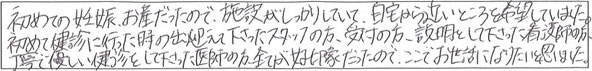 初めての妊娠、お産だったので、施設がしっかりしていて、自宅から近いところを希望していました。
初めて健診に行った時の出迎えて下さったスタッフの方、受付の方、説明をして下さった看護師の方、
丁寧で優しい健診をして下さった医師の方、全てが好印象だったので、ここでお世話になりたいと思いました。